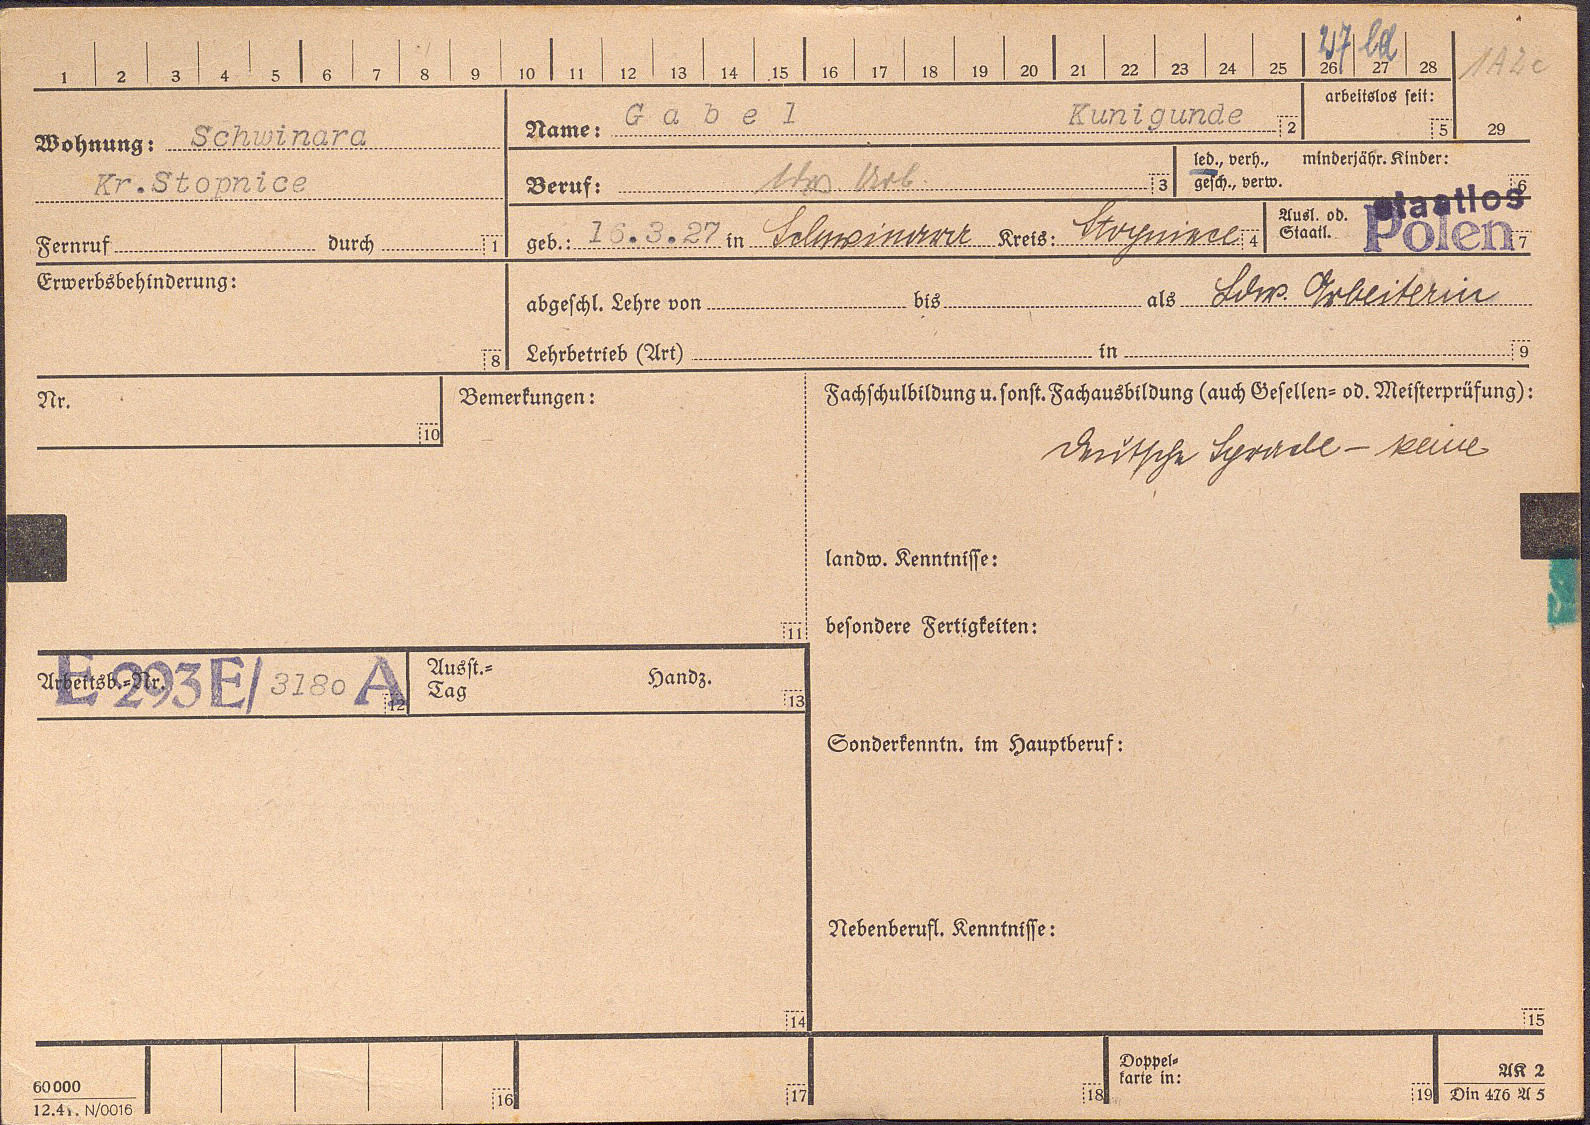 1 2 3 4 5 6 7 8 9 10 11 12 13 14 15 16 17 18 19 20 21 22 23 24 25 26 27 28
1A2c
arbeitslos seit:
5
29
Wohnung: Schwinara
Kr.Stopnice
Fernruf durch 1
Name: Gabel Kunigunde 2
Beruf: Arb. 3
led., verh., minderjähr. Kinder:
gesch., verw. 6
geb.: 16.3.27 in Schwinara Kreis: Stopnice 4
Ausl. od.
Staatl. 7
staatlos
Polen
Erwerbsbehinderung:
8
abgeschl. Lehre von bis als Ldw. Arbeiterin
Lehrbetrieb (Art) in 9
Nr.
10
Bemerkungen:
11
Fachschulbildung u. sonst. Fachausbildung (auch Gesellen= od. Meisterprüfung):
Deutsche Sprache – keine
landw. Kenntnisse:
besondere Fertigkeiten:
Arbeitsb.=Nr. E 293E/3180 A 12
Ausst.=
Tag
Handz.
13
Sonderkenntn. im Hauptberuf:
Nebenberufl. Kenntnisse:
14
15
60000
12.41. N/0016
16
17
18
Doppel=
karte in:
19
AK 2
Din 476 A 5